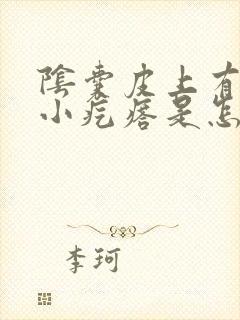 陰囊皮上有
小疙瘩是怎
李珂